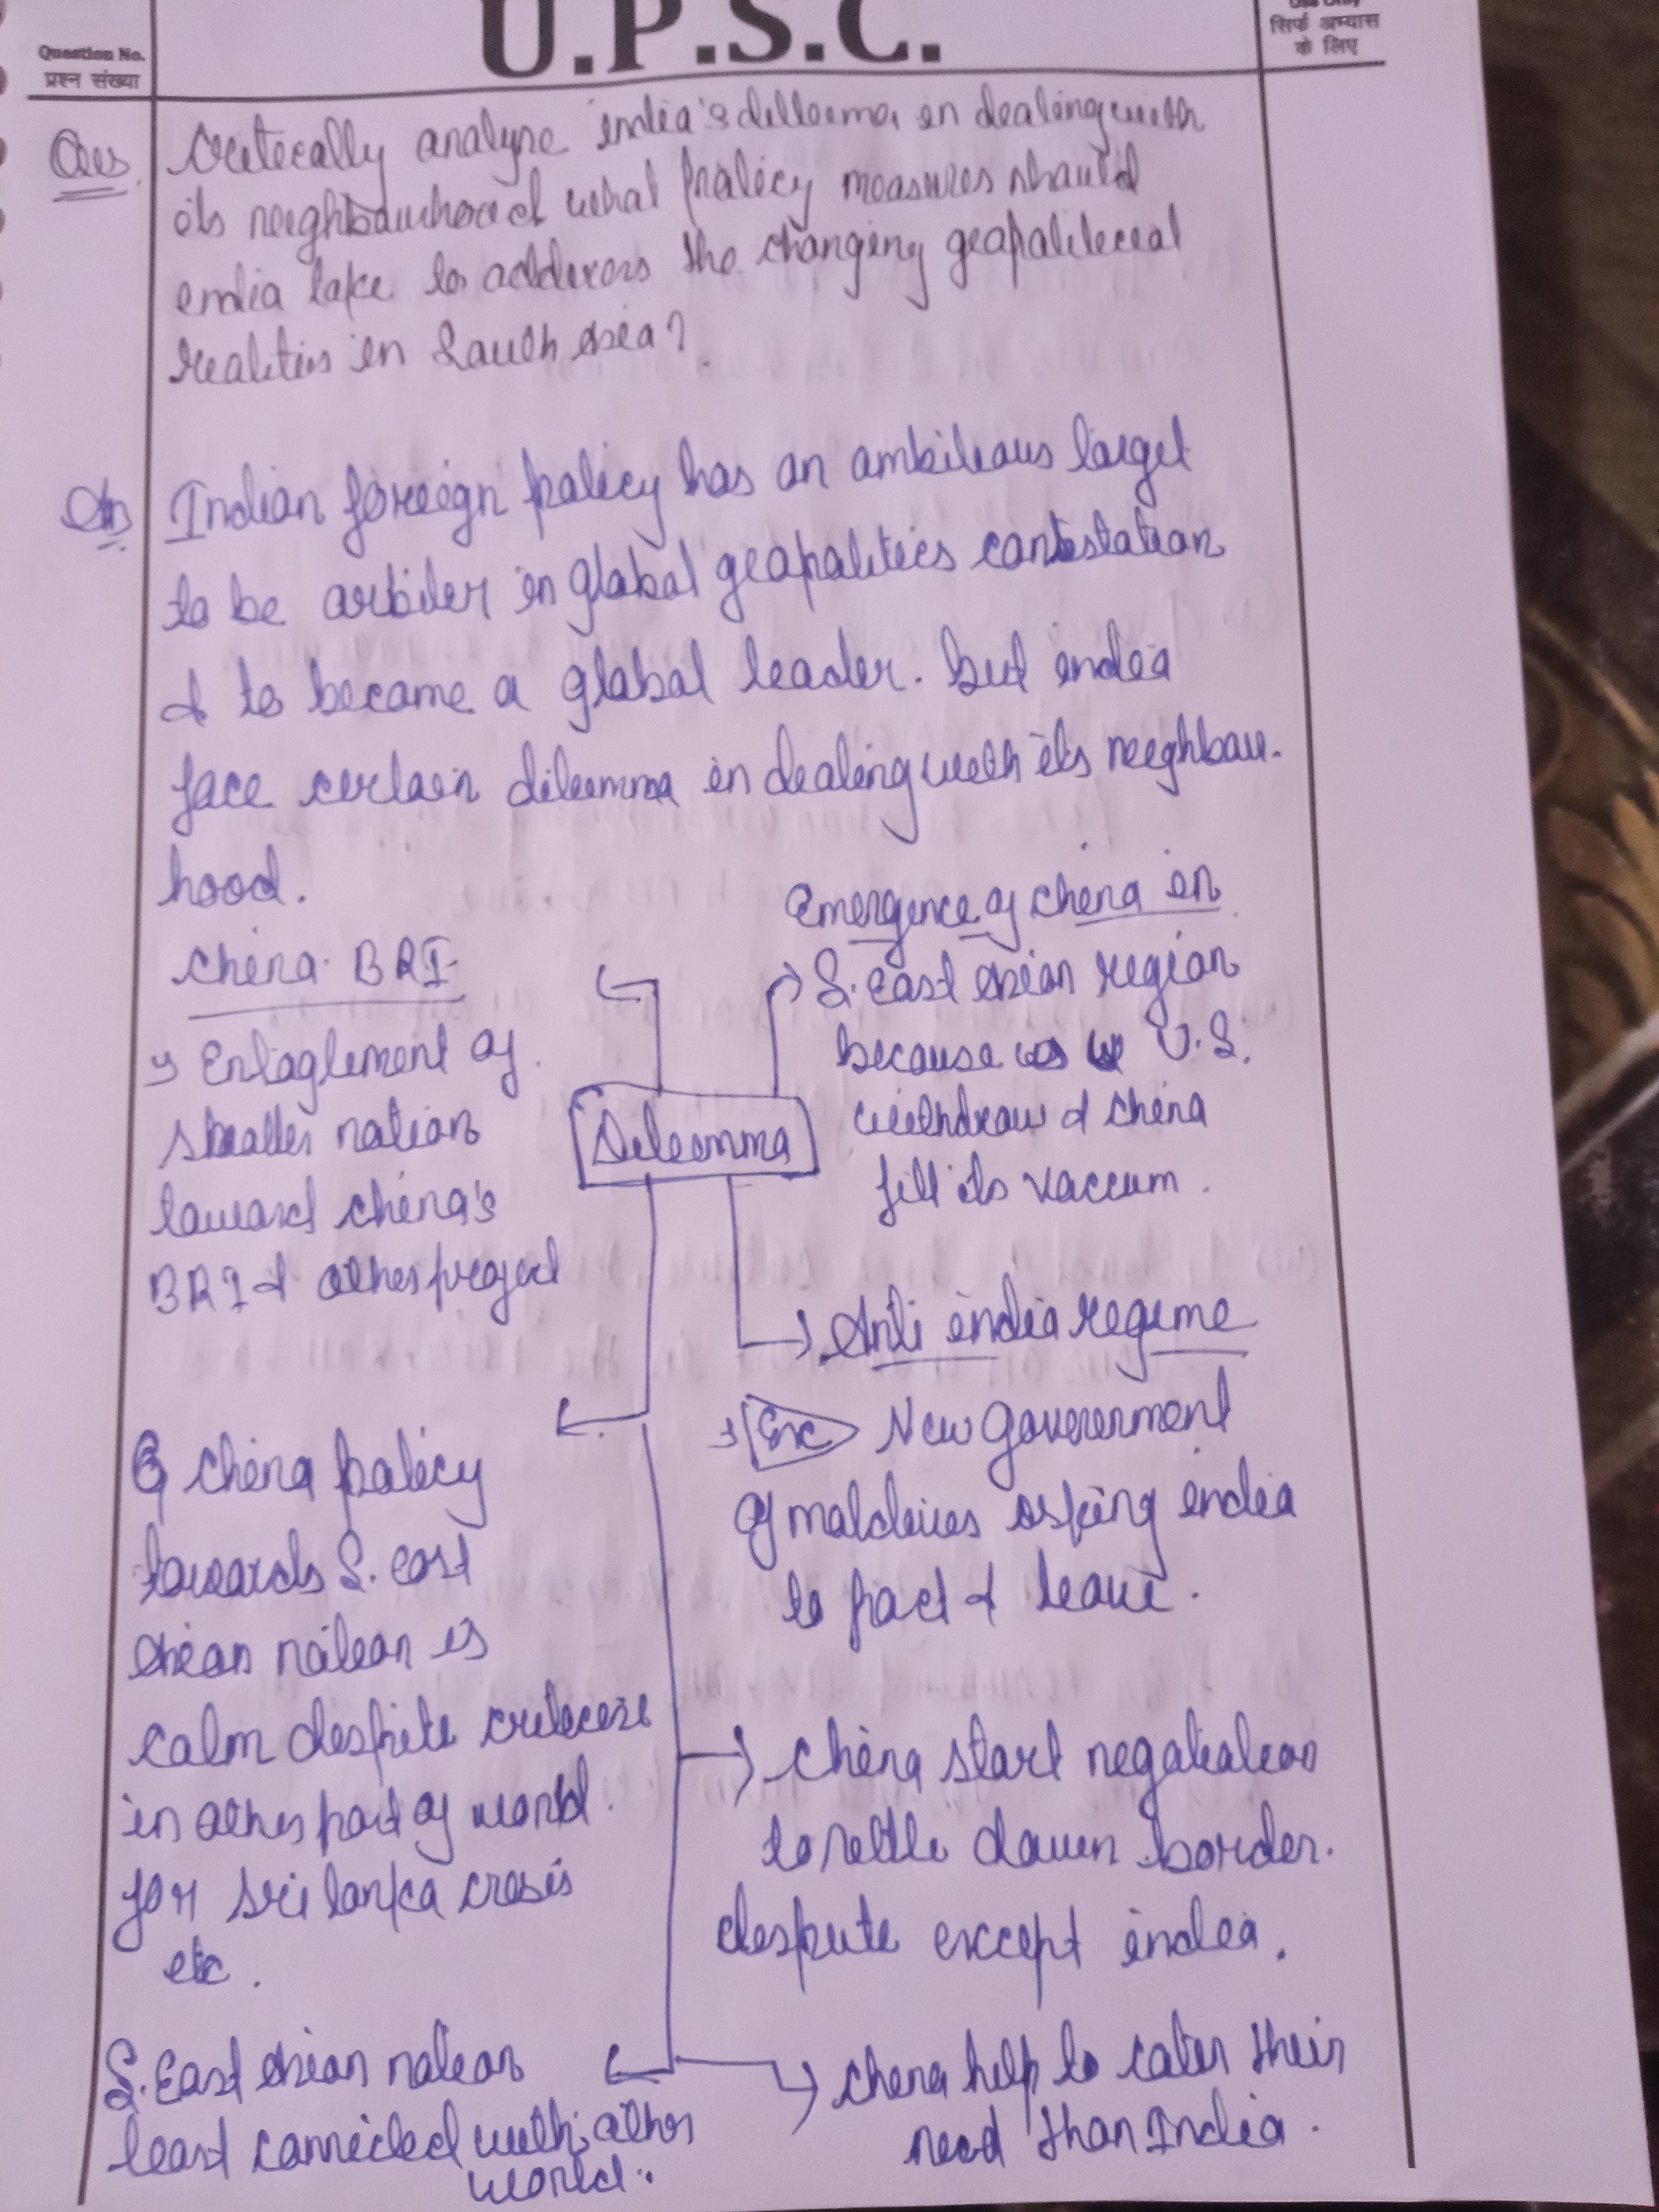 U.P.S.C.
Question No.
प्रश्न संख्या
Use Only
सिर्फ अभ्यास
के लिए
Ques. Critically analyse india's dilleema in dealing with
its neighbourhood what policy measures should
india take to address the changing geopolitical
realities in South Asia?
Ans Indian foreign policy has an ambitious target
to be arbiter in global geopolitics contestation
& to become a global leader. But india
face certain dileemma in dealing with its neighbou-
hood.
China BRI
→ Entaglement of
smaller nation
toward china's
BRI & other project
Emergence of china in
S. East Asian region
because U.S.
withdraw & china
fill its vaccum.
Dileemma
Anti india regime
→ Exc New Goverernment
of maldives asking india
to pact & leave.
China policy
towards S. east
Asian nation is
calm despite criticise
in other part of world
for Sri lanka crisis
etc.
China start negotiation
to settle down border
dispute except india.
S. East Asian nation
least connected with other
world.
China help to cater their
need than India.